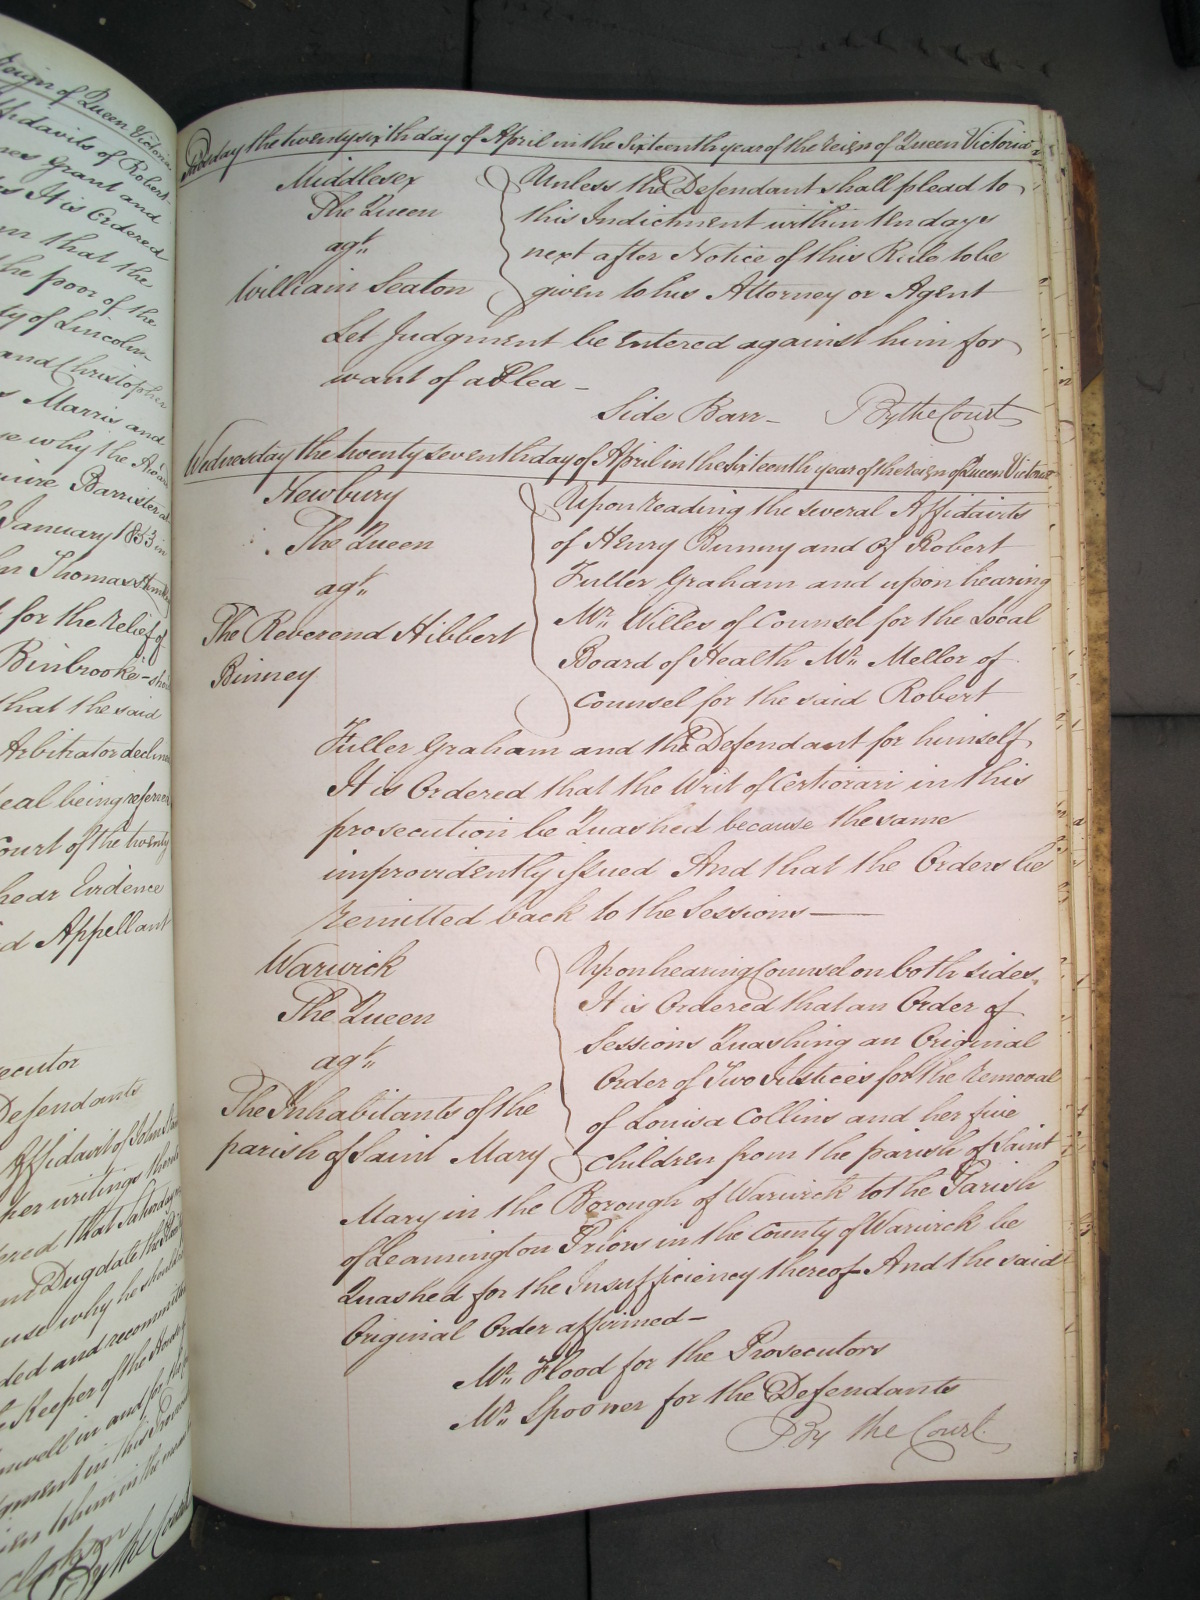 Reign of Queen Victoria
Affidavits of Robert
Grant and
It is Ordered
that the
the poor of the
of Lincoln
and Christopher
Marris and
why the
Barrister at
January 1853 in
Thomas
for the relief of
Binbrooke
that the said
Arbitrator
being
Court of the twenty
hear Evidence
Appellant
Defendants
Affidavit of John
writings
that Saturday
Dugdale the
why he should
and recommitted
Keeper of the House of
in and for the
in this
By the Court
Tuesday the twenty sixth day of April in the Sixteenth year of the reign of Queen Victoria
Middlesex
The Queen
agt.
William Seaton
Unless the Defendant shall plead to
this Indictment within ten days
next after Notice of this Rule to be
given to his Attorney or Agent
Let Judgment be Entered against him for
want of a Plea –
Side Barr – By the Court
Wednesday the twenty seventh day of April in the Sixteenth year of the reign of Queen Victoria
Newbury
The Queen
agt.
The Reverend Hibbert
Binney
Upon reading the several Affidavits
of Henry Bunny and of Robert
Fuller Graham and upon hearing
Mr. Willes of Counsel for the Local
Board of Health Mr. Mellor of
Counsel for the said Robert
Fuller Graham and the Defendant for himself
It is Ordered that the Writ of Certiorari in this
prosecution be Quashed because the same
improvidently issued And that the Orders be
remitted back to the Sessions —
Warwick
The Queen
agt.
The Inhabitants of the
parish of Saint Mary
Upon hearing Counsel on both sides.
It is Ordered that an Order of
Sessions Quashing an Original
Order of Two Justices for the removal
of Louisa Collins and her five
Children from the parish of Saint
Mary in the Borough of Warwick to the Parish
of Leamington Priors in the County of Warwick be
Quashed for the Insufficiency thereof – And the said
Original Order affirmed –
Mr. Flood for the Prosecutors
Mr. Spooner for the Defendants
By the Court.